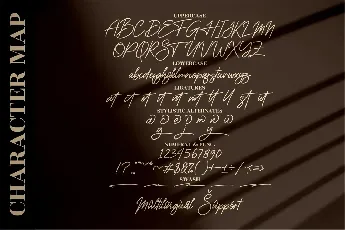 CHARACTER MAP
UPPERCASE
ABCDEFGHIJKLMN
OPQRSTUVWXYZ
LOWERCASE
abcdefghijklmnopqrstuvwxyz
LIGATURES
STYLISTIC ALTERNATES
NUMERAL & PUNC.
1234567890
SWASH
Multilingual Support